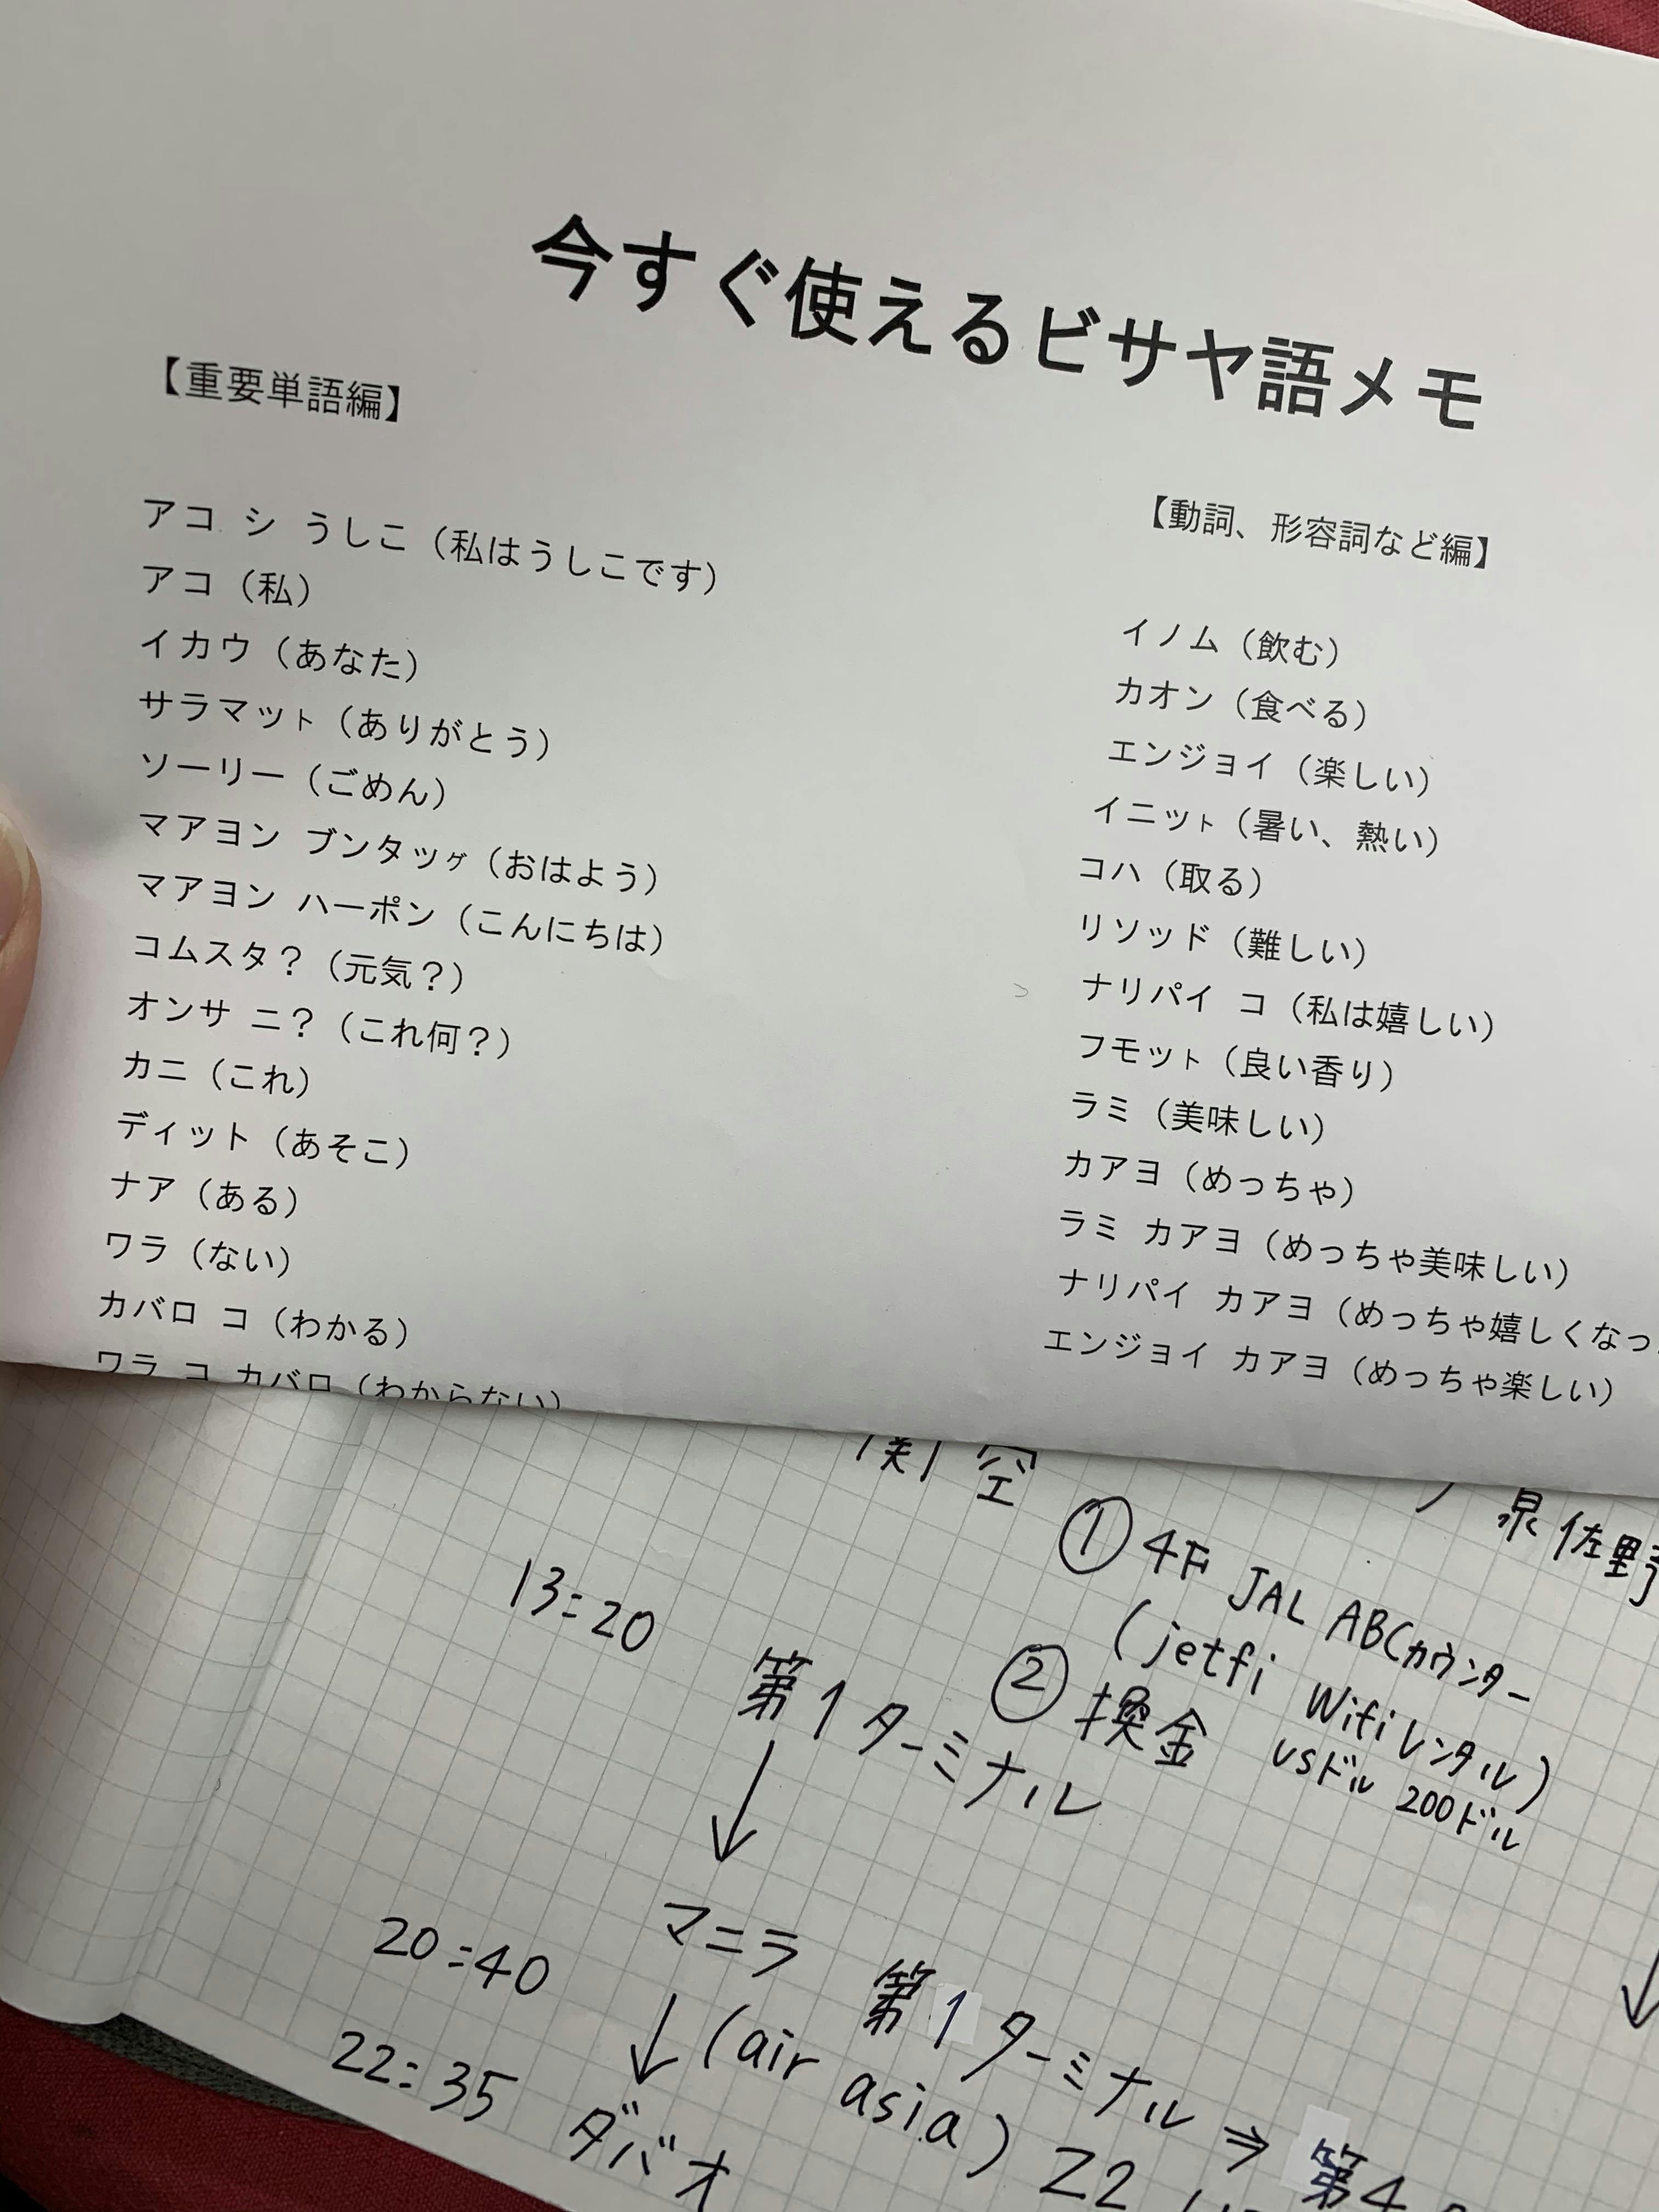 今すぐ使えるビサヤ語メモ
【重要単語編】
アコ シ うしこ（私はうしこです）
アコ（私）
イカウ（あなた）
サラマット（ありがとう）
ソーリー（ごめん）
マアヨン ブンタッグ（おはよう）
マアヨン ハーポン（こんにちは）
コムスタ？（元気？）
オンサ ニ？（これ何？）
カニ（これ）
ディット（あそこ）
ナア（ある）
ワラ（ない）
カバロ コ（わかる）
ワラ コ カバロ（わからない）
【動詞、形容詞など編】
イノム（飲む）
カオン（食べる）
エンジョイ（楽しい）
イニット（暑い、熱い）
コハ（取る）
リソッド（難しい）
ナリパイ コ（私は嬉しい）
フモット（良い香り）
ラミ（美味しい）
カアヨ（めっちゃ）
ラミ カアヨ（めっちゃ美味しい）
ナリパイ カアヨ（めっちゃ嬉しくなっ
エンジョイ カアヨ（めっちゃ楽しい）
関空
泉佐野
① 4F JAL ABCカウンター
（jetfi Wifiレンタル）
② 換金 USドル 200ドル
13:20 第1ターミナル
↓
20:40 マニラ 第1ターミナル ⇒ 第4
↓（air asia）Z2
22:35 ダバオ